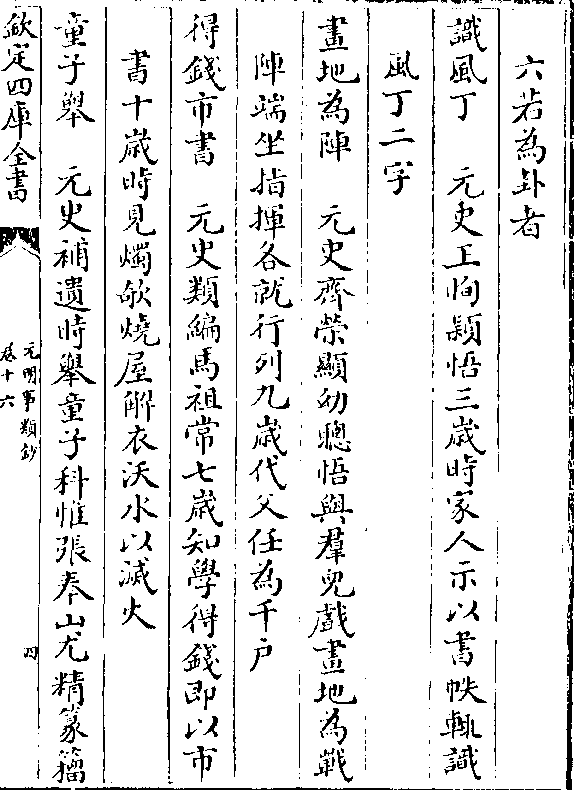 六若為卦者
識風丁　元史王恂穎悟三歲時家人示以書帙輒識
風丁二字
畫地為陣　元史齊榮顯幼聰悟與羣兒戲畫地為戰
陣端坐指揮各就行列九歲代父任為千户
得錢市書　元史類編馬祖常七歲知學得錢即以市
書十歲時見燭欹燒屋解衣沃水以滅火
童子舉　元史補遺時舉童子科惟張奉山尤精篆籀
欽定四庫全書
元明事類鈔
卷十六
四